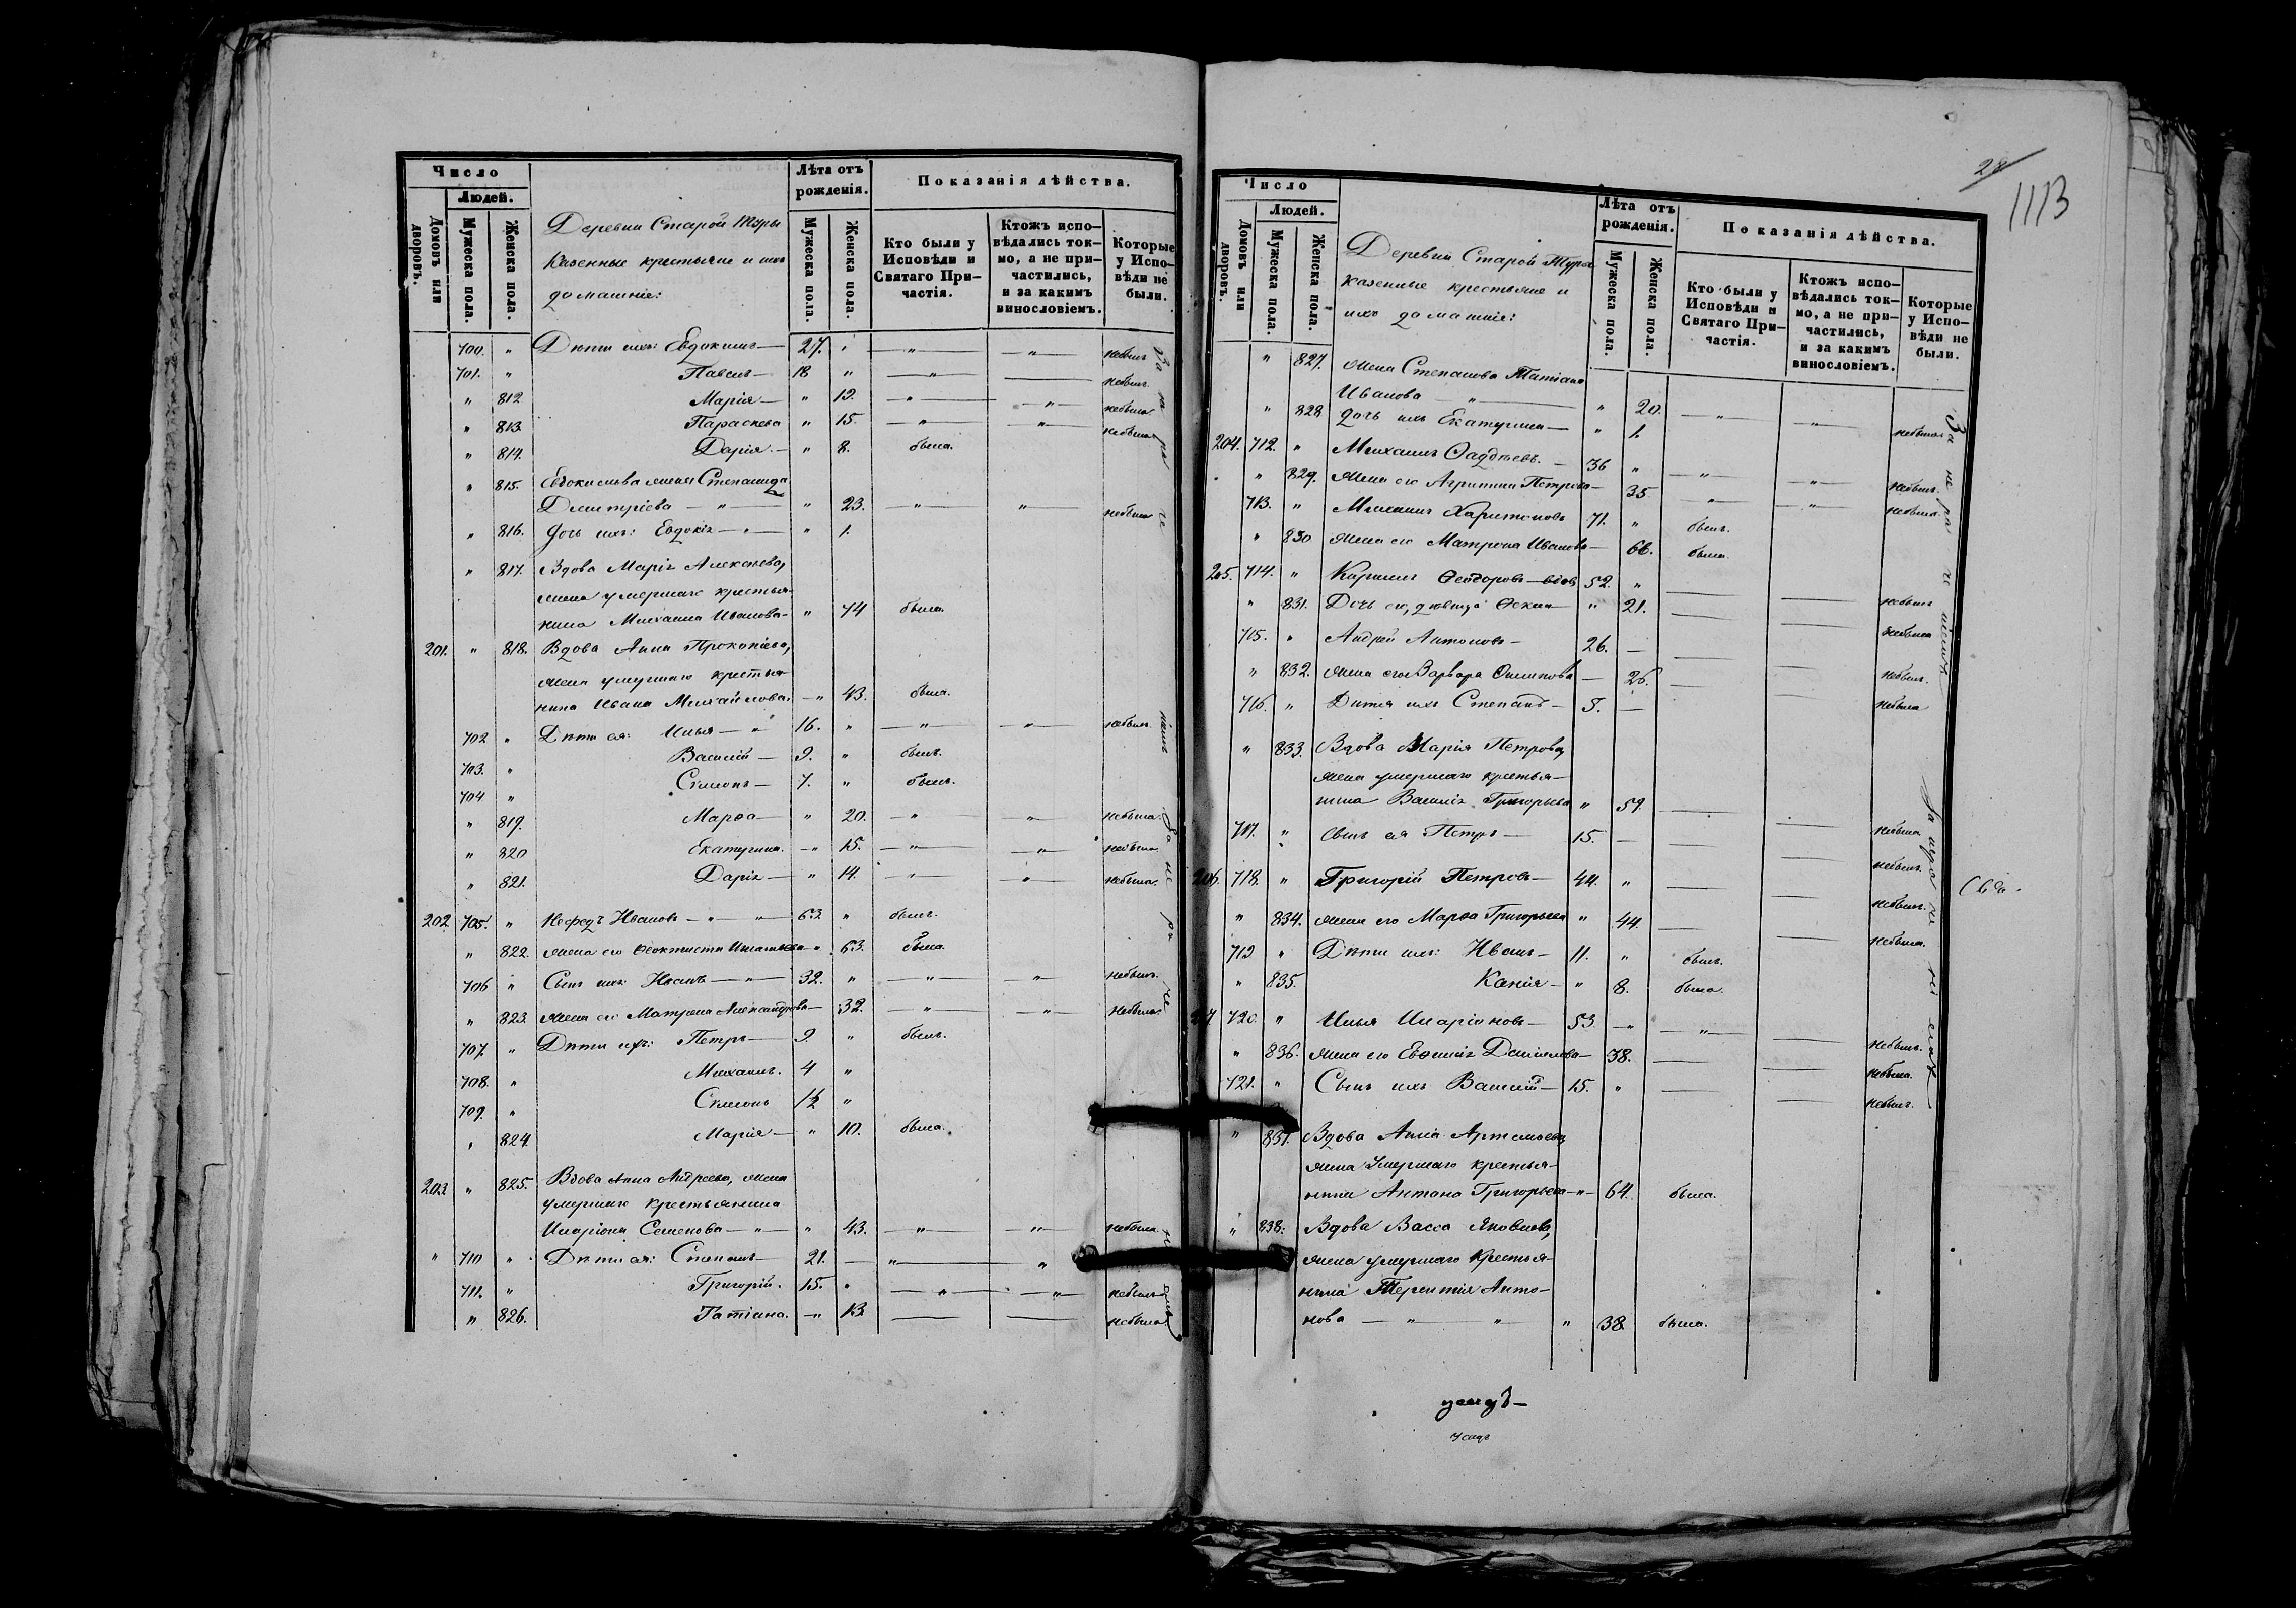 Число
Людей.
Домовъ или дворовъ.
Мужеска пола.
Женска пола.
Деревни Старой Туры
Казенные крестьяне и ихъ
домашніе:
Лѣта отъ рожденія.
Мужеска пола.
Женска пола.
Показанія дѣйства.
Кто были у Исповѣди и Святаго Причастія.
Ктожъ исповѣдались токмо, а не причастились, и за какимъ винословіемъ.
Которые у Исповѣди не были.
700. " Дѣти ихъ: Евдокимъ — 27. " — " — — " — небылъ
701. " Павелъ — 18 " — " — — небылъ
" 812 Марія — " 19. — " — — " — небыла
" 813. Параскева " 15. — " — — " — небыла
" 814. Дарія — " 8. была.
" 815. Евдокимова жена Степанида
Дмитріева — " — " 23. — " — " небыла
" 816. Дочь ихъ: Евдокія — " — " 1.
" 817. Вдова Марія Алексѣева,
жена умершаго крестья-
нина Михаила Иванова — " 74 была
201. " 818. Вдова Анна Прокопіева,
жена умершаго крестья-
нина Ивана Михайлова — " 43. была.
702 " Дѣти ея: Илья — " 16. " — " — " небылъ
703. " Василій — 9. " былъ.
704 " Симеонъ — 7. " былъ.
" 819. Марѳа — " 20. — " — — " — небыла.
" 820 Екатерина. — " 15. — " — — " — небыла
" 821. Дарія — " 14. — " — — " — небыла.
202 705. " Нефедъ Ивановъ — " — " — 63. " былъ.
" 822. жена его Ѳеоктиста Игнатьева — " 63. была.
706 " Сынъ ихъ Иванъ — " — 32. " — " — " небылъ.
" 823. жена его Матрена Александрова — 32. — " — — " — небыла.
707. " Дѣти ихъ: Петръ — 9. " былъ.
708. " Михаилъ. 4 "
709. " Симеонъ 1½ "
" 824. Марія — " 10. была.
203. " 825. Вдова Анна Андреева, жена
умершаго крестьянина
Иларіона Семенова — " — " 43. — " — — " — небыла.
" 710 " Дѣти ея: Степанъ — 21. — " — "
711. " Григорій. 15. " — " — — " — небылъ
" 826. Татіана. — " 13. — — небыла
28
1113
Число
Людей.
Домовъ или дворовъ.
Мужеска пола.
Женска пола.
Деревни Старой Туры
казенные крестьяне и
ихъ домашніе:
Лѣта отъ рожденія.
Мужеска пола.
Женска пола.
Показанія дѣйства.
Кто были у Исповѣди и Святаго Причастія.
Ктожъ исповѣдались токмо, а не причастились, и за какимъ винословіемъ.
Которые у Исповѣди не были.
" 827. жена Степанова Татіана
Иванова — " — " 20. — " — — " — небыла
" 828 дочь ихъ Екатерина — " 1.
204. 712. " Михаилъ Ѳаддѣевъ. — 36 " — " — — " — небылъ.
" 829. жена его Агрипина Петрова — 35 — " — — " — небыла
713. " Михаилъ Харитоновъ 71. " былъ.
" 830 жена его Матрена Иванова — 66. была.
205. 714. " Кирилъ Ѳеодоровъ — вдов 52. " — — небылъ
" 831. Дочь его, дѣвица Ѳекла — " 21. — — небыла
715. " Андрей Антоновъ — 26. — — — небылъ.
" 832. жена его Варвара Филипова — 26. — — небыла
716. " Дитя ихъ Степанъ — 5. —
" 833. Вдова Марія Петрова,
жена умершаго крестья-
нина Василія Григорьева " 59. — — небыла
717. " Сынъ ея Петръ — 15. — — — небылъ.
206. 718. " Григорій Петровъ — 44. " — — небылъ.
" 834. жена его Марѳа Григорьева " 44. — — небыла.
719 " Дѣти ихъ: Иванъ — 11. " былъ.
" 835. Ксенія — " 8. была.
207 720. " Илья Иларіоновъ — 53. — " — " — — небылъ.
" 836. жена его Евѳимія Даніилова — 38. — — небыла.
721. " Сынъ ихъ Василій — 15. " — — небылъ.
" 837. Вдова Анна Артемьева,
жена умершаго крестья-
нина Антона Григорьева — " — 64. была.
" 838. Вдова Васса Яковлева,
жена умершаго крестья-
нина Терентія Анто-
нова — " — " — " 38. была.